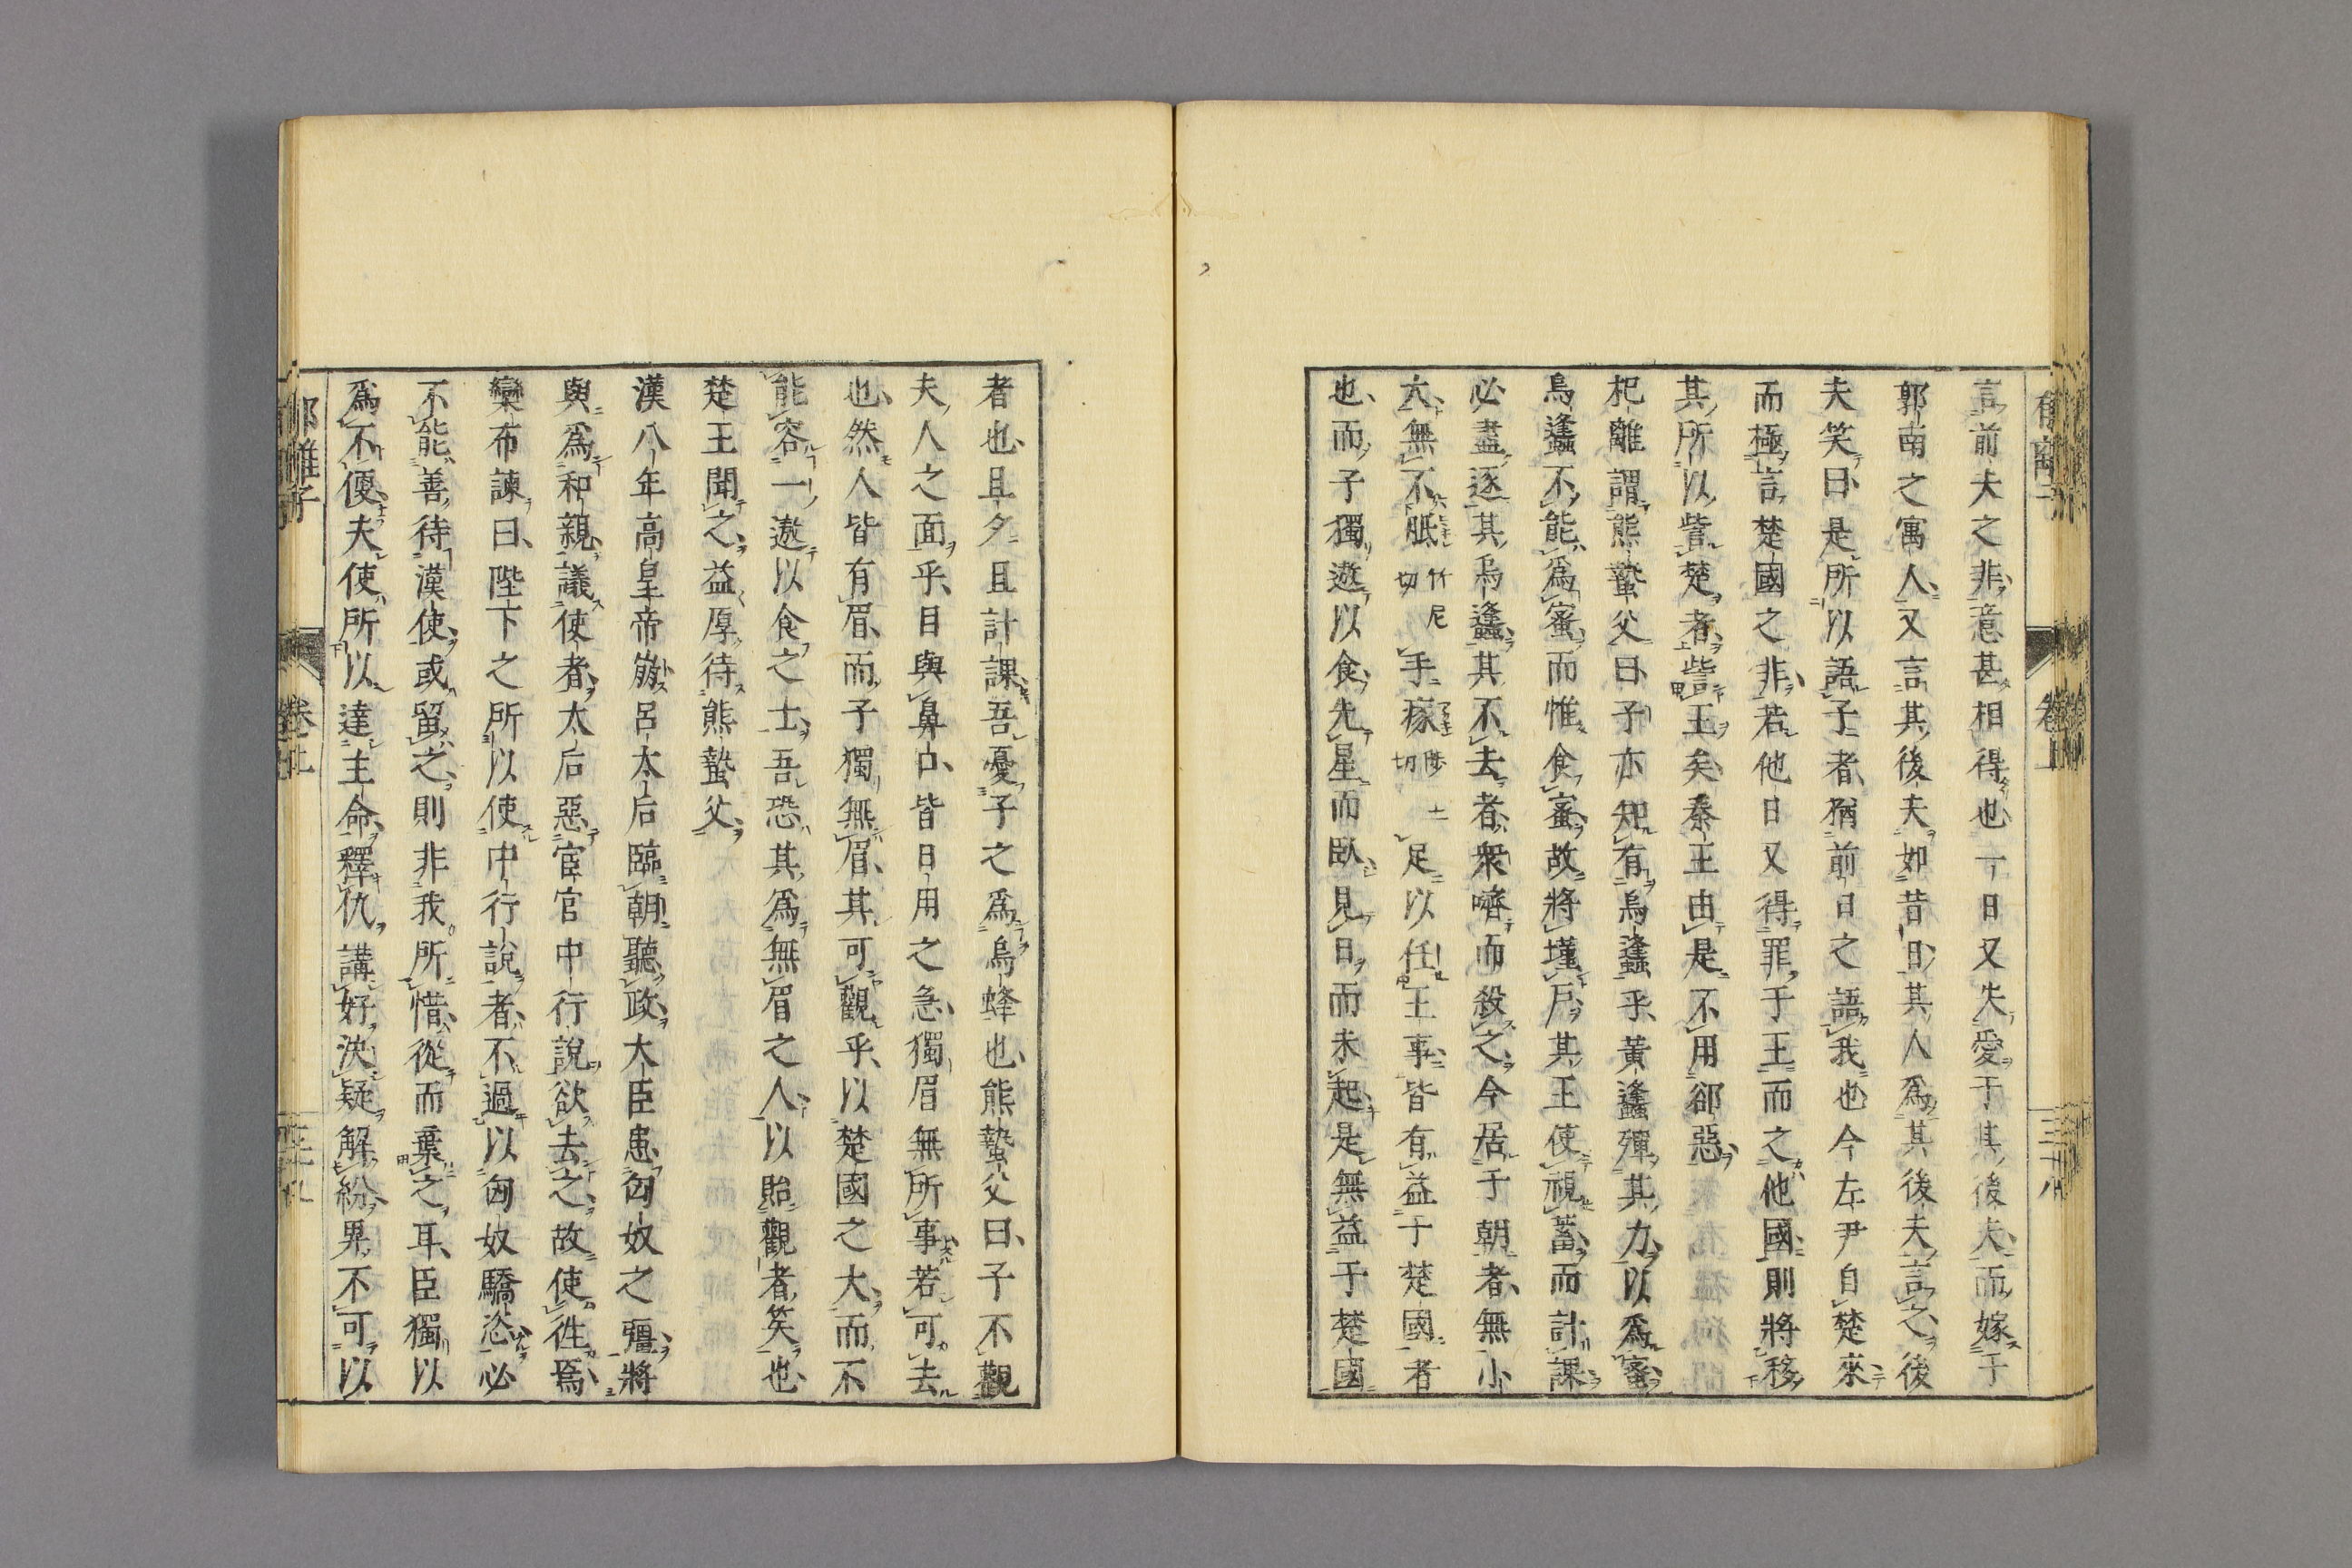 郁離子
卷上
三十八
言前夫之非意甚相得也一日又失愛于其後夫而嫁于
郭南之寓人又言其後夫如昔日其人爲其後夫言之後
夫笑曰是所以語子者猶前日之語我也今左尹自楚來
而極言楚國之非若他日又得罪于王而之他國則將移
其所以訾楚者訾王矣秦王由是不用郤惡
杞離謂熊蟄父曰子亦知有烏蠭乎黃蠭殫其力以爲蜜
烏蠭不能爲蜜而惟食蜜故將墐戶其王使視蓄而計課
必盡逐其烏蠭其不去者衆嚌而殺之今居于朝者無小
大無不胝竹尼切手瘃陟玉切足以任王事皆有益于楚國者
也而子獨遨以食先星而臥見日而未起是無益于楚國
者也且夕且計課吾憂子之爲烏蜂也熊蟄父曰子不觀
夫人之面乎目與鼻口皆日用之急獨眉無所事若可去
也然人皆有眉而子獨無眉其可觀乎以楚國之大而不
能容一遨以食之士吾恐其爲無眉之人以貽觀者笑也
楚王聞之益厚待熊蟄父
漢八年高皇帝崩呂太后臨朝聽政大臣患匈奴之彊將
與爲和親議使者太后惡宦官中行說欲去之故使徃焉
欒布諫曰陛下之所以使中行說者不過以匈奴驕恣必
不能善待漢使或留之則非我所惜從而棄之耳臣獨以
爲不便夫使所以達主命釋仇講好決疑解紛界不可以
郁離子
卷上
三十九